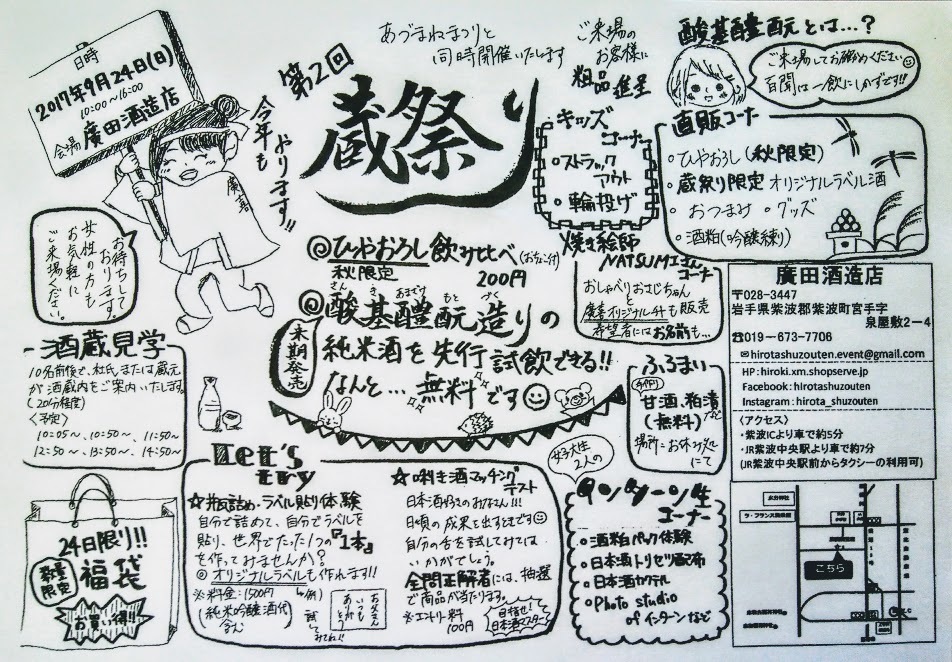 日時
2017年9月24日(日)
10:00~16:00
会場 廣田酒造店
廣喜
今年も
おります!!
お待ちして
おります。
女性の方も
お気軽に
ご来場ください。
第2回
蔵祭り
あづまねまつりと
同時開催いたします
ご来場の
お客様に
粗品進呈
キッズ
コーナー
・ストラック
アウト
・輪投げ
酸基醴酛とは…?
ご来場してお確かめください
百聞は一飲にしかずです!!!
直販コーナー
・ひやおろし(秋限定)
・蔵祭り限定オリジナルラベル酒
・おつまみ ・グッズ
・酒粕(吟醸練り)
◎ひやおろし飲み比べ(おちょこ付)
秋限定
200円
さん き あまざけ もと づく
◎酸基醴酛造りの
純米酒を先行試飲できる!!
なんと…無料です
来期発売
焼き絵師
NATSUMIさん
コーナー
おしゃべりおコじちゃん
と
廣喜オリジナル升も販売
希望者にはお名前も…
ふるまい
甘酒、粕漬など
(無料)
場所:お休み処
にて
廣田酒造店
〒028-3447
岩手県紫波郡紫波町宮手字
泉屋敷2-4
☎019-673-7706
✉hirotashuzouten.event@gmail.com
HP:hiroki.xm.shopserve.jp
Facebook:hirotashuzouten
Instagram:hirota_shuzouten
〈アクセス〉
・紫波ICより車で約5分
・JR紫波中央駅より車で約7分
(JR紫波中央駅前からタクシーの利用可)
酒蔵見学
10名前後で、杜氏または蔵元
が酒蔵内をご案内いたします。
(20分程度)
〈予定〉
10:05~、10:50~、11:50~
12:50~、13:50~、14:50~
24日限り!!!
数量
限定
福袋
お買い得!!
Let's
try
☆瓶詰め・ラベル貼り体験
自分で詰めて、自分でラベルを
貼り、世界でたった1つの『1本』
を作ってみませんか?
◎オリジナルラベルも作れます!!
※料金:1500円
(純米吟醸酒代
含む)
(例)
お父さん
いつも
ありがとう
試してみてね!!
☆唎き酒マッチング
テスト
日本酒好きのみなさん!!!
日頃の成果を出すときです
自分の舌を試してみては
いかがでしょう。
全問正解者には、抽選
で商品があたります。
※エントリー料
100円
目指せ!
日本酒マスター
女子大生
2人の
インターン生
コーナー
・酒粕パック体験
・日本酒トリセツ配布
・日本酒カクテル
・Photo studio
of インターンなど
水分神社
ラ・フランス温泉館
こちら